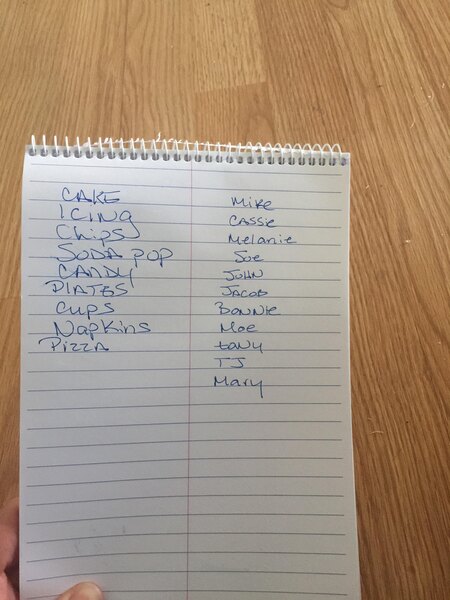 CAKE
ICING
Chips
SODA POP
CANDY
PLATES
Cups
Napkins
Pizza
Mike
Cassie
Melanie
Joe
John
Jacob
Bonnie
Moe
tony
TJ
Mary